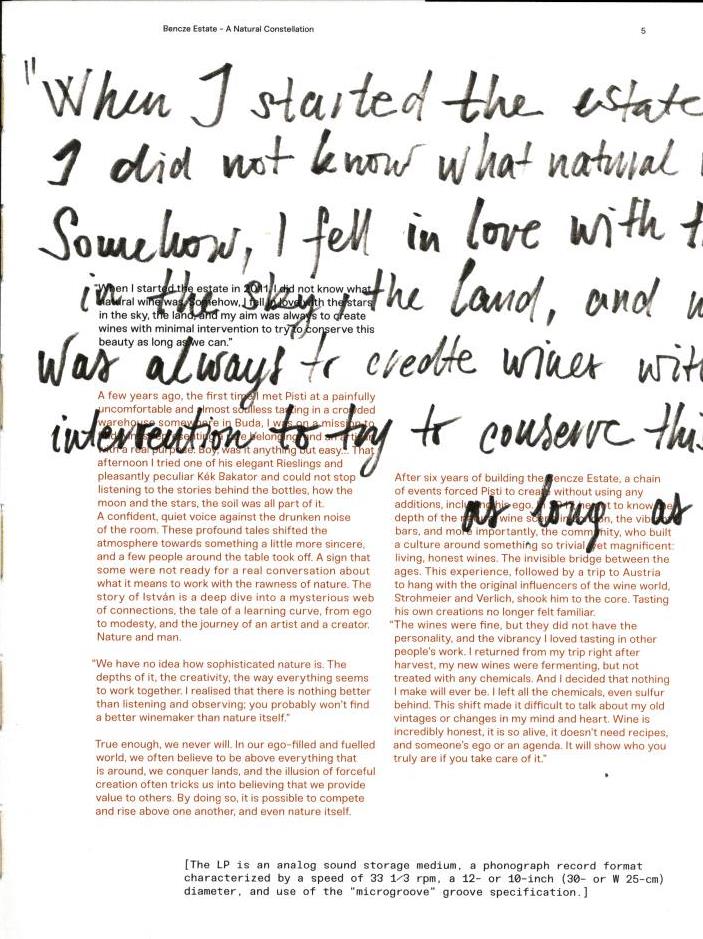 Bencze Estate - A Natural Constellation
5
"When I started the estate
I did not know what natural
Somehow, I fell in love with
in the sky, the land, and
was always to create wines with
intervention to try to conserve this
as long as
"When I started the estate in 2011, I did not know what
natural wine was. Somehow, I fell in love with the stars
in the sky, the land, and my aim was always to create
wines with minimal intervention to try to conserve this
beauty as long as we can."
A few years ago, the first time I met Pisti at a painfully
uncomfortable and almost soulless tasting in a crowded
warehouse somewhere in Buda, I was on a mission to
belonging and an
with a real purpose. Boy, was it anything but easy... That
afternoon I tried one of his elegant Rieslings and
pleasantly peculiar Kék Bakator and could not stop
listening to the stories behind the bottles, how the
moon and the stars, the soil was all part of it.
A confident, quiet voice against the drunken noise
of the room. These profound tales shifted the
atmosphere towards something a little more sincere,
and a few people around the table took off. A sign that
some were not ready for a real conversation about
what it means to work with the rawness of nature. The
story of István is a deep dive into a mysterious web
of connections, the tale of a learning curve, from ego
to modesty, and the journey of an artist and a creator.
Nature and man.
"We have no idea how sophisticated nature is. The
depths of it, the creativity, the way everything seems
to work together. I realised that there is nothing better
than listening and observing; you probably won't find
a better winemaker than nature itself."
True enough, we never will. In our ego-filled and fuelled
world, we often believe to be above everything that
is around, we conquer lands, and the illusion of forceful
creation often tricks us into believing that we provide
value to others. By doing so, it is possible to compete
and rise above one another, and even nature itself.
After six years of building the Bencze Estate, a chain
of events forced Pisti to create without using any
additions, including his ego. to know the
depth of the wine scene in the vibrant
bars, and more importantly, the community, who built
a culture around something so trivial yet magnificent:
living, honest wines. The invisible bridge between the
ages. This experience, followed by a trip to Austria
to hang with the original influencers of the wine world,
Strohmeier and Verlich, shook him to the core. Tasting
his own creations no longer felt familiar.
"The wines were fine, but they did not have the
personality, and the vibrancy I loved tasting in other
people's work. I returned from my trip right after
harvest, my new wines were fermenting, but not
treated with any chemicals. And I decided that nothing
I make will ever be. I left all the chemicals, even sulfur
behind. This shift made it difficult to talk about my old
vintages or changes in my mind and heart. Wine is
incredibly honest, it is so alive, it doesn't need recipes,
and someone's ego or an agenda. It will show who you
truly are if you take care of it."
[The LP is an analog sound storage medium, a phonograph record format
characterized by a speed of 33 1/3 rpm, a 12- or 10-inch (30- or W 25-cm)
diameter, and use of the "microgroove" groove specification.]